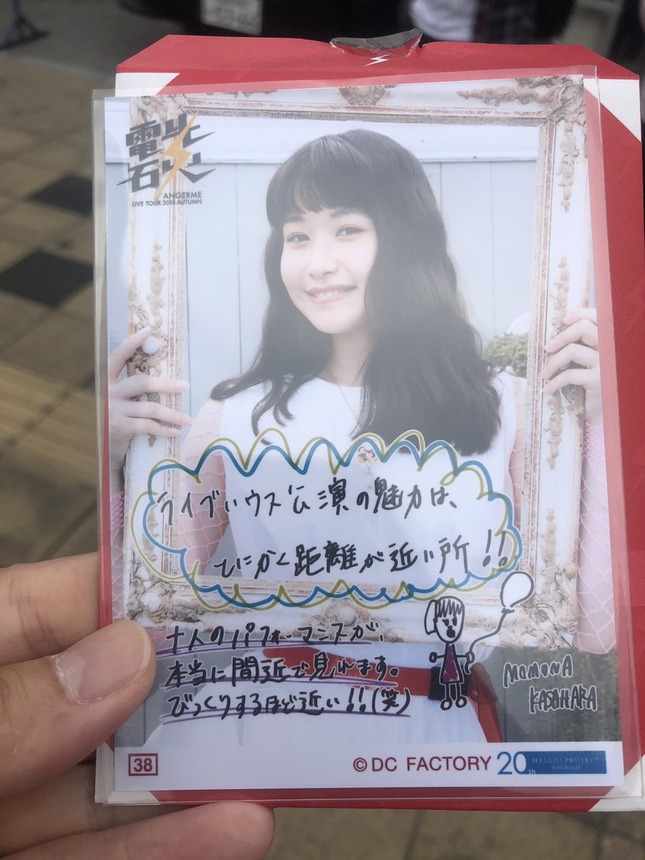 電光石火
ANGERME
LIVE TOUR 2018 AUTUMN
ライブハウス公演の魅力は、
とにかく距離が近い所!!
十人のパフォーマンスが、
本当に間近で見れます。
びっくりするほど近い!!(笑)
MOMONA
KASAHARA
38
©DC FACTORY
20th
HELLO! PROJECT